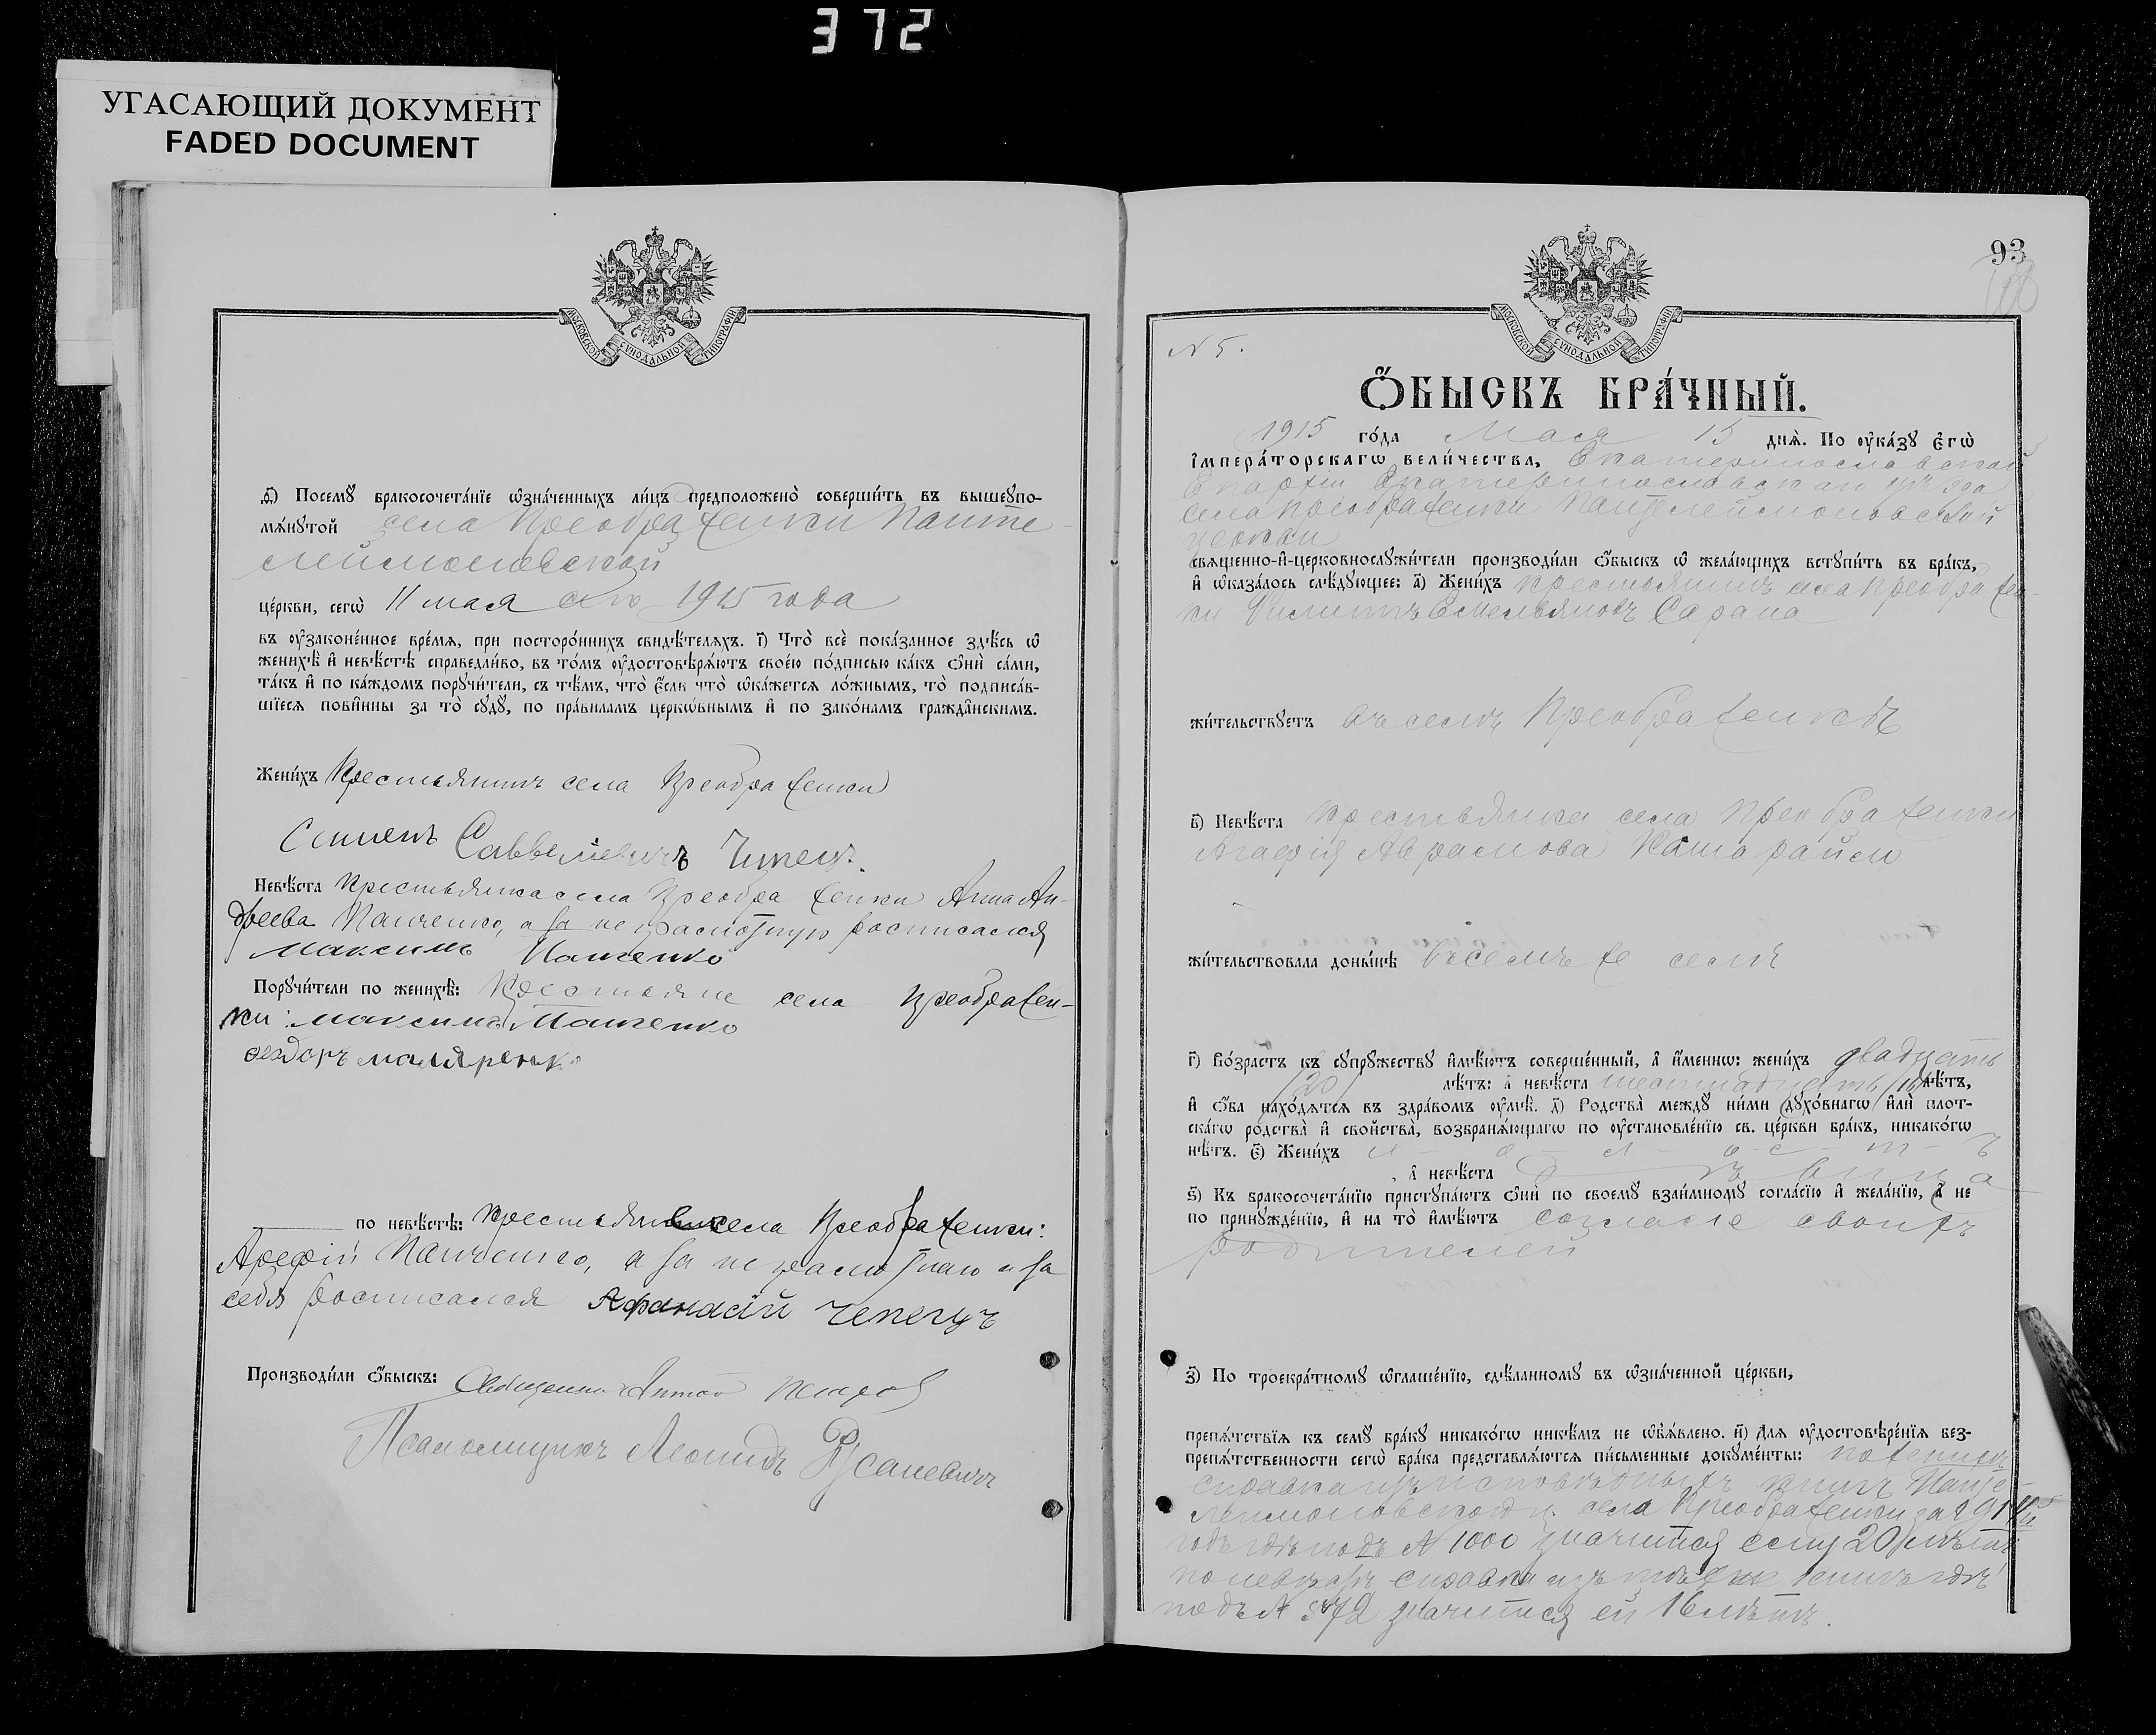 372
УГАСАЮЩИЙ ДОКУМЕНТ
FADED DOCUMENT
МОСКОВСКОЙ СѴНОДАЛЬНОЙ ТИПОГРАФІИ
д҃) Посемꙋ бракосочета́нїе ѡ҆зна́ченныхъ ли́цъ предположено̀ соверши́ть въ вышеꙋпо-
мѧ́нꙋтой села Преображенки Панте-
леймоновской
це́ркви, сегѡ̀ 11 мая сего 1915 года
въ ᲂу҆законе́нное вре́мѧ, при посторо́ннихъ свидѣ́телѧхъ. і҃) Что̀ всѐ пока́занное здѣ́сь ѡ҆
женихѣ̀ и҆ невѣ́стѣ справедли́во, въ то́мъ ᲂу҆достовѣрѧ́ютъ свое́ю по́дписью ка́къ ѻ҆нѝ са́ми,
та́къ и҆ по ка́ждомъ порꙋчи́тели, съ тѣ́мъ, что̀ є҆́сли что̀ ѡ҆ка́жетсѧ ло́жнымъ, то̀ подписа́в-
шїесѧ пови́нны за то̀ сꙋдꙋ̀, по пра́виламъ церкѡ́внымъ и҆ по зако́намъ гражда̂нскимъ.
Жени́хъ Крестьянинъ села Преображенки
Семенъ Савельевичъ Чепецъ.
Невѣ́ста Крестьянка села Преображенки Анна Ан-
дреева Панченко, а за неграмотную росписался
Максимъ Пащенко
Порꙋчи́тели по женихѣ̀: Крестьяне села Преображен-
ки: Максимъ Пащенко
Феодоръ маляренко
по невѣ́стѣ: Крестьяне села Преображенки:
Арефій Панченко, а за неграмотнаго и за
себя росписался Афанасій Чепецъ
Производи́ли ѻ҆́быскъ: Священникъ Антоній Петров
Псаломщикъ Леонидъ Русаневичъ
93
МОСКОВСКОЙ СѴНОДАЛЬНОЙ ТИПОГРАФІИ
N 5.
Ѻ҆́БЫСКЪ БРА́ЧНЫЙ.
1915 го́да Мая 15 днѧ̀. По ᲂу҆ка́зꙋ Є҆гѡ̀
І҆мпера́торскагѡ вели́чества, Екатеринославской
Епархіи Екатеринославскаго уѣзда
села Преображенки Пантелеймоновской
церкви
свѧще́нно-и҆-церковнослꙋжи́тели производи́ли ѻ҆́быскъ ѡ҆ жела́ющихъ встꙋпи́ть въ бра́къ,
и҆ ѡ҆каза́лось слѣ́дꙋющее: а҃) Жени́хъ крестьянинъ села Преображен-
ки Филиппъ Емельяновъ Сарана
жи́тельствꙋетъ въ селѣ Преображенкѣ
в҃) Невѣ́ста крестьянка села Преображенки
Агафія Аврамова
жи́тельствовала доны́нѣ въ семъ же селѣ
г҃) Во́зрастъ къ сꙋпрꙋ́жествꙋ и҆мѣ́ютъ соверше́нный, а҆ и҆́меннѡ: жени́хъ двадцать
/20/ лѣ́тъ: а҆ невѣ́ста шестнадцать /16/ лѣ́тъ,
и҆ ѻ҆́ба нахо́дѧтсѧ въ здра́вомъ ᲂу҆мѣ̀. д҃) Родства̀ междꙋ̀ ни́ми дꙋхо́внагѡ и҆лѝ плот-
ска́гѡ родства̀ и҆ сво́йства, возбранѧ́ющагѡ по ᲂу҆становле́нїю св. це́ркви бра́къ, никако́гѡ
нѣ́тъ. є҃) Жени́хъ холостъ
, а҆ невѣ́ста дѣвица
ѕ҃) Къ бракосочета́нїю пристꙋпа́ютъ ѻ҆нѝ по своемꙋ̀ взаи́мномꙋ согла́сїю и҆ жела́нїю, а҆ не
по принꙋжде́нїю, и҆ на то̀ и҆мѣ́ютъ согласіе своихъ
родителей
з҃) По троекра́тномꙋ ѡ҆глаше́нїю, сдѣ́ланномꙋ въ ѡ҆зна́ченной це́ркви,
препѧ́тствїѧ къ семꙋ̀ бра́кꙋ никако́гѡ никѣ́мъ не ѡ҆б̾ѧ́влено. и҃) Длѧ ᲂу҆достовѣре́нїѧ без-
препѧ́тственности сегѡ̀ бра́ка представлѧ́ютсѧ пи́сьменные докꙋме́нты: по женихѣ
справка изъ исповѣдныхъ книгъ Панте-
леймоновской ц. села Преображенки за 1914
годъ гдѣ подъ N 1000 значится ему 20 лѣтъ
по невѣстѣ справка изъ тѣхъ же книгъ гдѣ
подъ N 572 значится ей 16 лѣтъ.